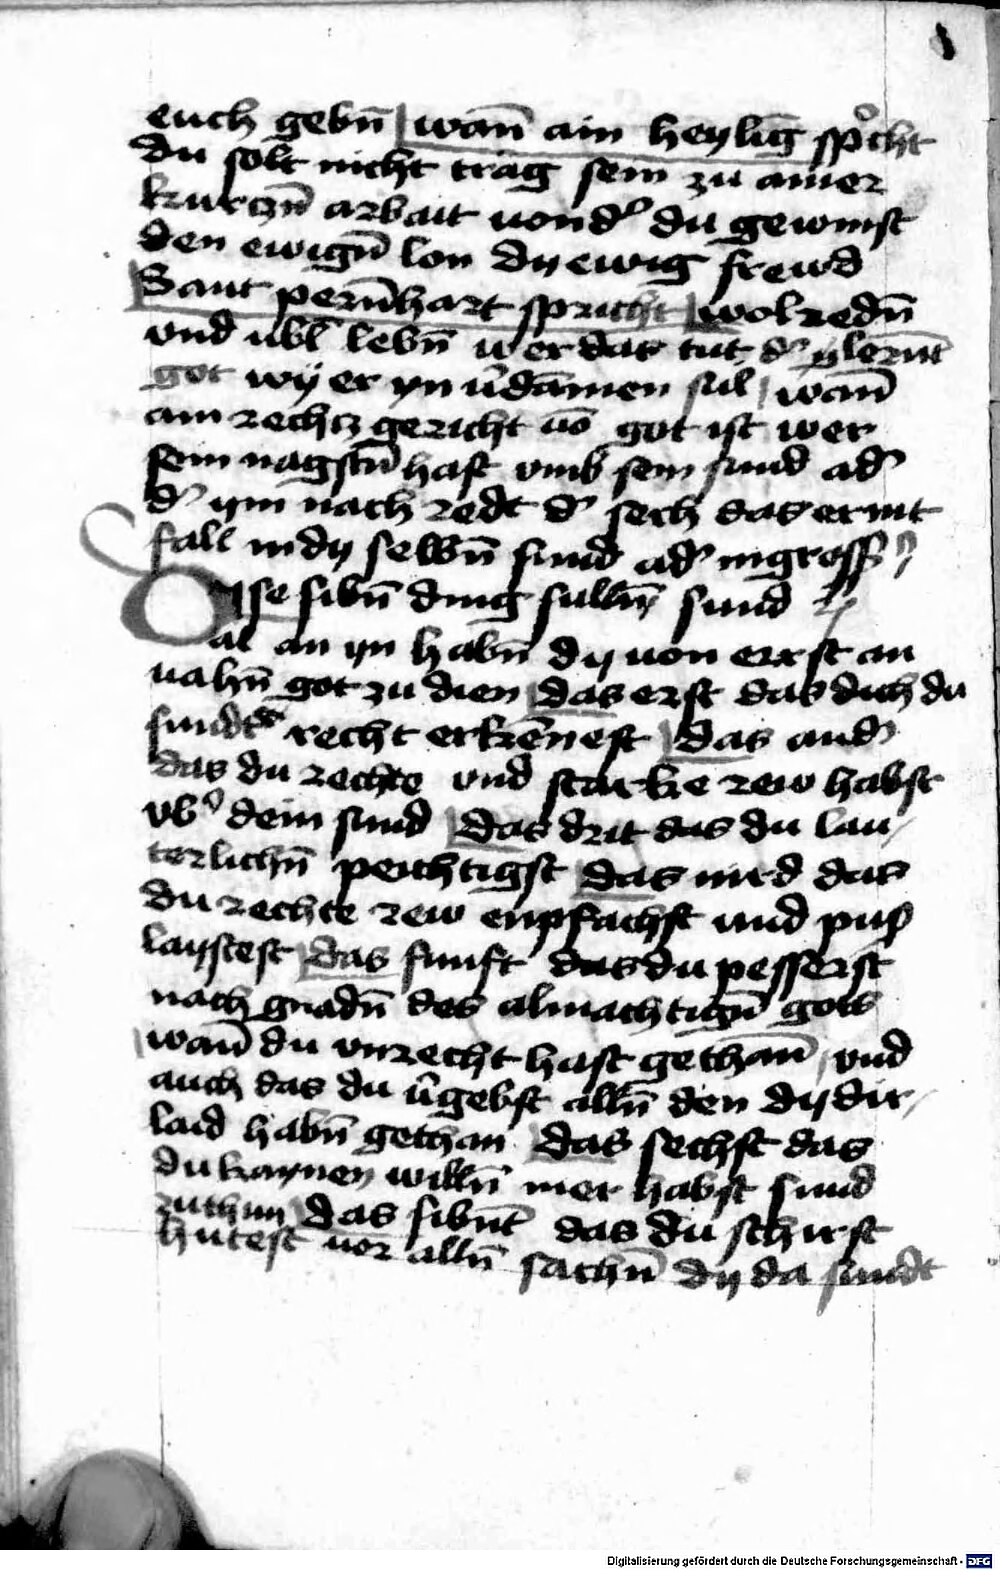 euch gebn̄ wan̄ ain heylig sp̊cht
du solt nicht trag sein zu ainer
kurczn̄ arbait von dˀ du gewinst
den ewign̄ lon dy ewig frewd
Sant pernhart spricht wol redn̄
vnd ubl lebn̄ wer das tut dˀ lernt
got wy er yn v̄damen sul wan̄
ain rechtz gericht vo̅ got ist wer
sein nagstn̄ hast vmb sein sund adˀ
dˀ ym nach redt dˀ sech das er nit
fall in dy selbn̄ sund adˀ in gross
Dise sibn̄ ding sulln̄ sund
al an yn habn̄ dy von errst an
vahn̄ got zu dien das erst das dich du
sundˀ recht erkennest das andˀ
das du rechte vnd starcke rew habst
vbˀ dein sund Das drit das du lau
terlichn̄ peichtigst das vird das
du rechte rew enpfachst vnd pusz
laystest das funft das du pesserst
nach gnadn̄ des almachtign̄ gots
wan̄ du vnrecht hast gethan vnd
auch das du v̄gebst alln̄ den dy dir
laid habn̄ gethan das sechst das
du kaynen willn̄ mer habst sund
zu thun das sibnt das du schirst
hutest vor alln̄ sachn̄ dy da sundt
Digitalisierung gefördert durch die Deutsche Forschungsgemeinschaft - DFG